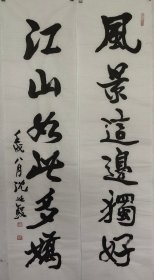 風景這邊獨好
江山如此多嬌
八月沈